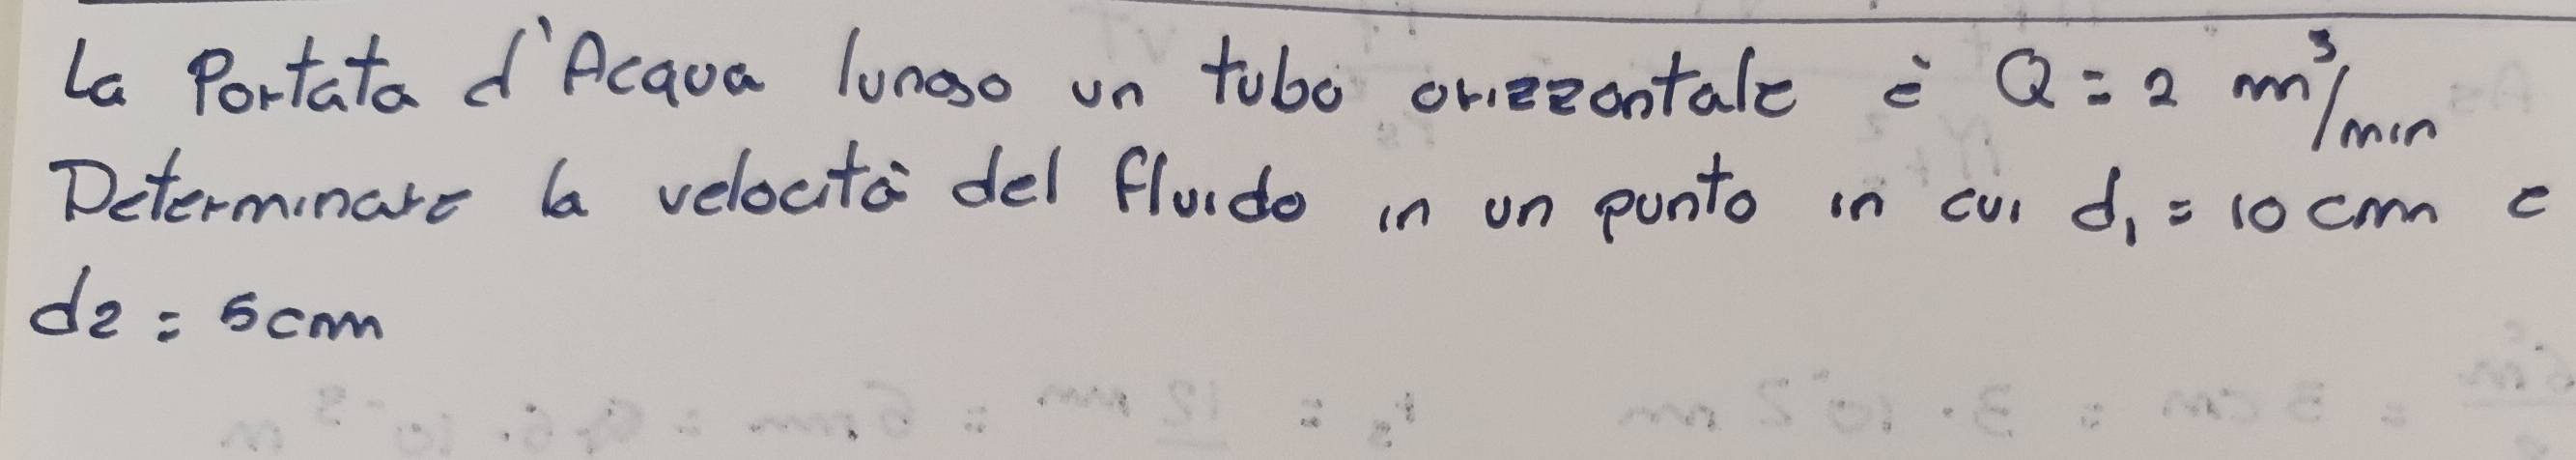 La Portata d'Acqua lungo un tubo orizzontale è Q = 2 m³/min
Determinare la velocità del fluido in un punto in cui d₁ = 10 cm e
d2 = 5cm